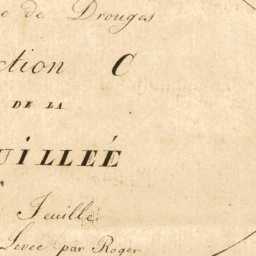 de Drouges
ction C
DE LA
UILLEÉ
Feuille
Levée par Roger